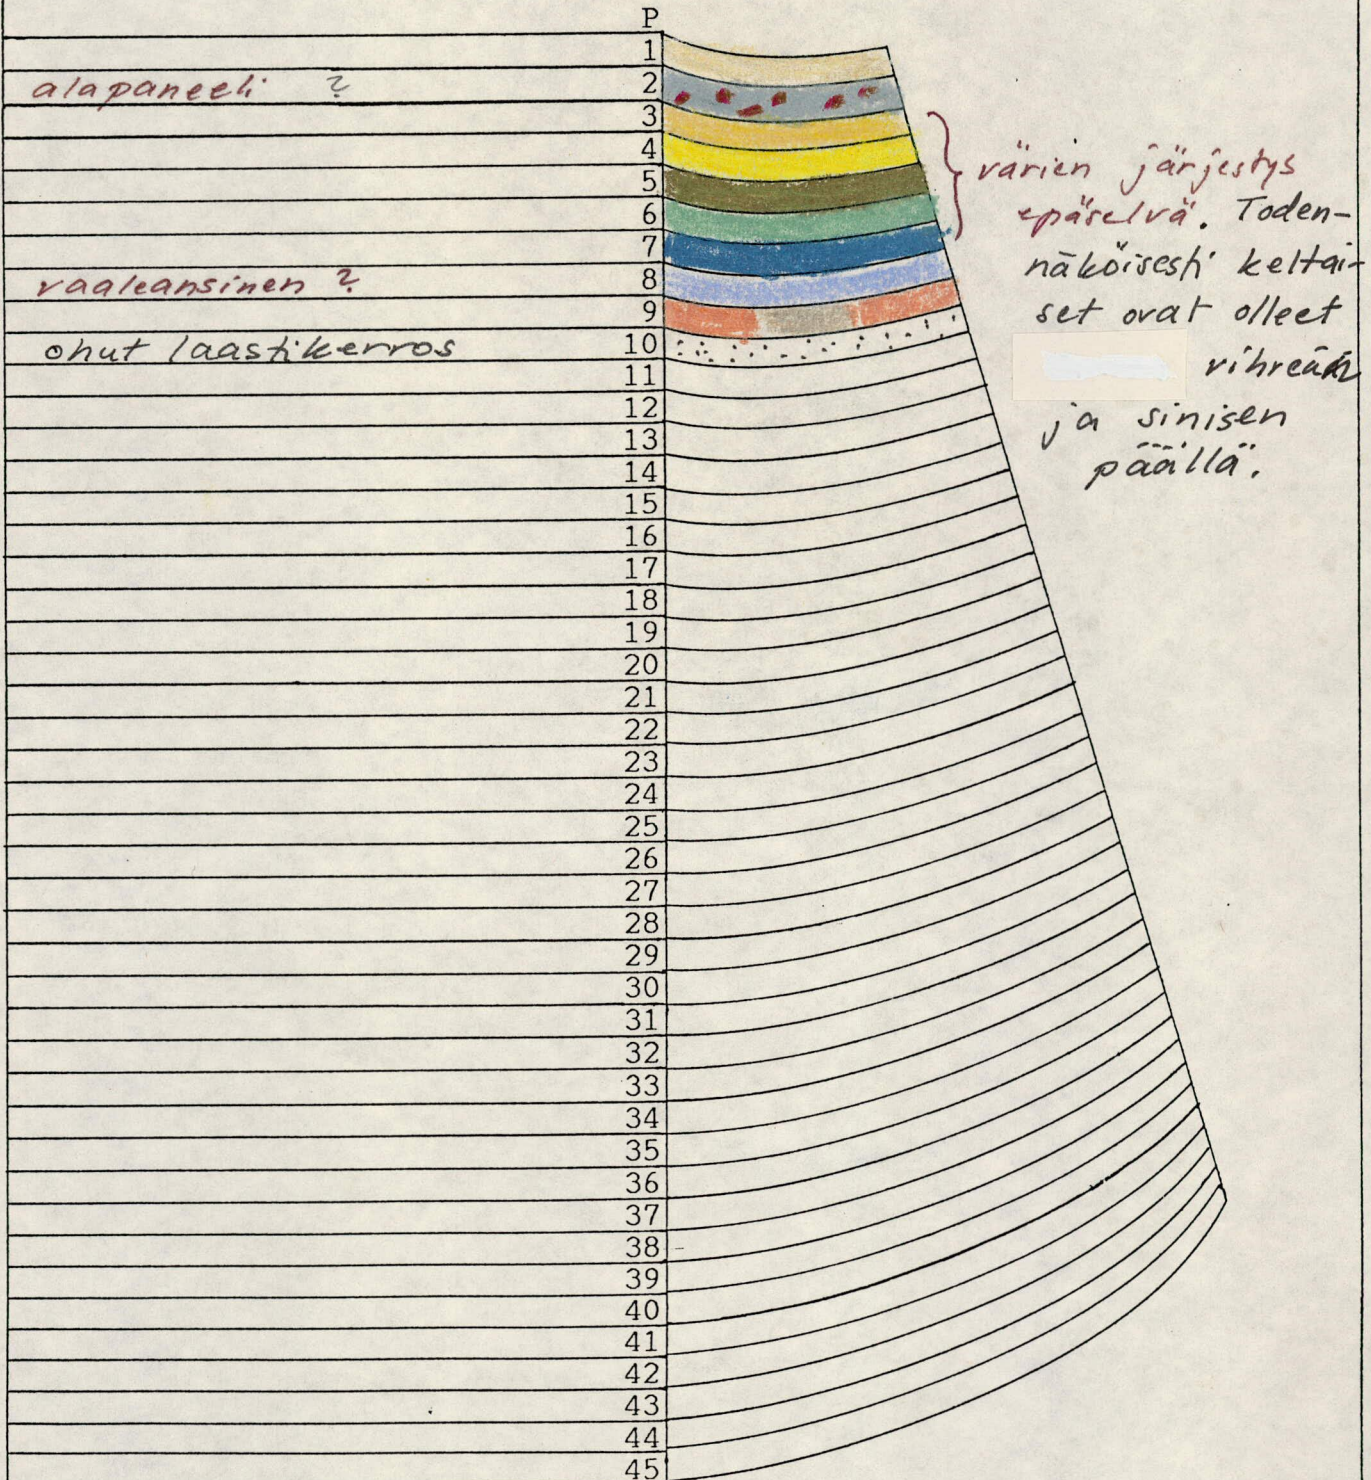 P
1
alapaneeli ? 2
3
4
5
6
7
vaaleansinen ? 8
9
ohut laastikerros 10
11
12
13
14
15
16
17
18
19
20
21
22
23
24
25
26
27
28
29
30
31
32
33
34
35
36
37
38
39
40
41
42
43
44
45
värien järjestys
epäselvä. Toden-
näköisesti keltai-
set ovat olleet
vihreän
ja sinisen
päällä.